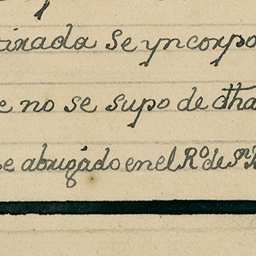 tirada se yncorpo
e no se supo de dha
e abrigado en el Rº de Sn